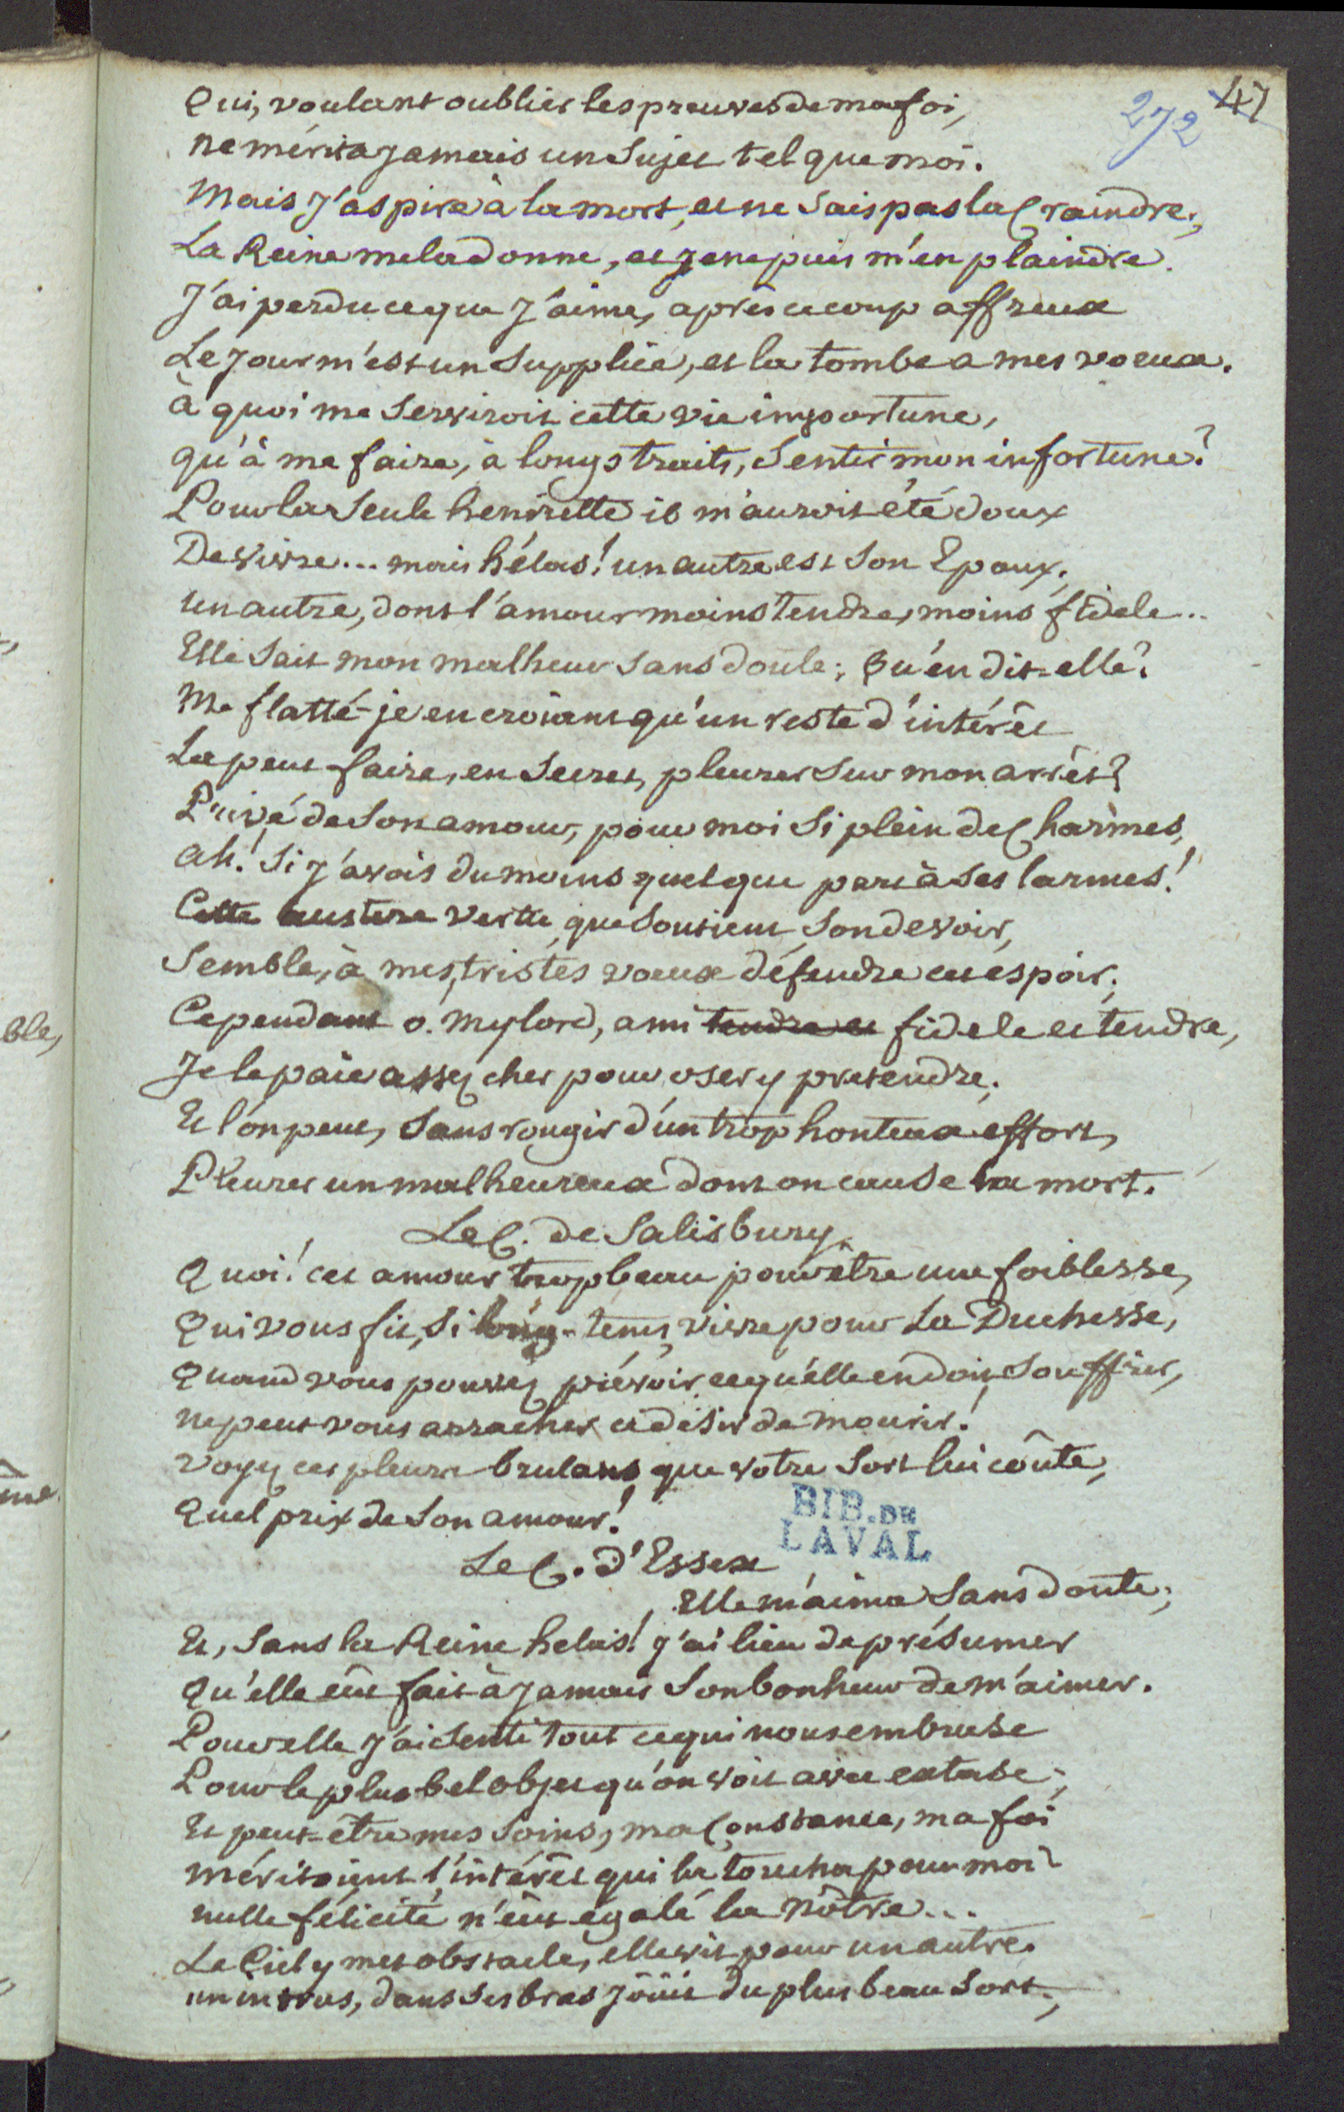 47
272
Qui, voulant oublier les preuves de ma foi,
ne mérita jamais un Sujet tel que moi.
Mais j'aspire à la mort, et ne sais pas la Craindre;
La Reine me la donne, et je ne puis m'en plaindre.
J'ai perdu ce que j'aime, après ce coup affreux
Le jour m'est un Supplice, et la tombe a mes voeux.
à quoi me Serviroit cette vie importune,
qu'à me faire, à longs traits, Sentir mon infortune?
Pour la Seule henriette il m'auroit été doux
De vivre... mais hélas! un autre est Son Epoux,
un autre, dont l'amour moins tendre, moins fidele..
Elle Sait mon malheur Sans doute; Qu'en dit-elle?
Me flatté-je en croïant qu'un reste d'intérêt
La peut faire, en Secret, pleurer Sur mon arrêt?
Privé de Son amour, pour moi Si plein de Charmes,
ah! Si j'avois du moins quelque part à Ses larmes!
Cette austere vertu que Soutient Son devoir,
Semble, à mes tristes voeux défendre cet espoir;
Cependant o. Mylord, ami tendre et fidele et tendre,
Je le païe assez cher pour oser y pretendre;
Et l'on peut, Sans rougir d'un trop honteux effort,
Pleurer un malheureux dont on cause la mort.
Le C. de Salisbury.
Quoi! cet amour trop beau pour être une foiblesse,
Qui vous fit, Si long-tems, vivre pour La Duchesse,
Quand vous pouvez prévoir ce qu'elle en doit Souffrir,
ne peut vous arracher ce désir de mourir!
voyez ces pleurs brulans que votre Sort lui coûte,
Quel prix de Son amour!
BIB. DE
LAVAL
Le C. d'Essex
Elle m'aima Sans doute;
Et, Sans la Reine helas! j'ai lieu de présumer
Qu'elle eût fait à jamais Son bonheur de m'aimer.
Pour elle j'ai Senti tout ce qui nous embrase
Pour le plus bel objet qu'on voit avec extase;
Et peut-être mes Soins, ma Constance, ma foi
méritoient l'intérêt qui la toucha pour moi
nulle félicité n'eût égalé la nôtre...
Le Ciel y met obstacle, elle vit pour un autre.
un intrus, dans Ses bras joüit du plus beau Sort;
ble,